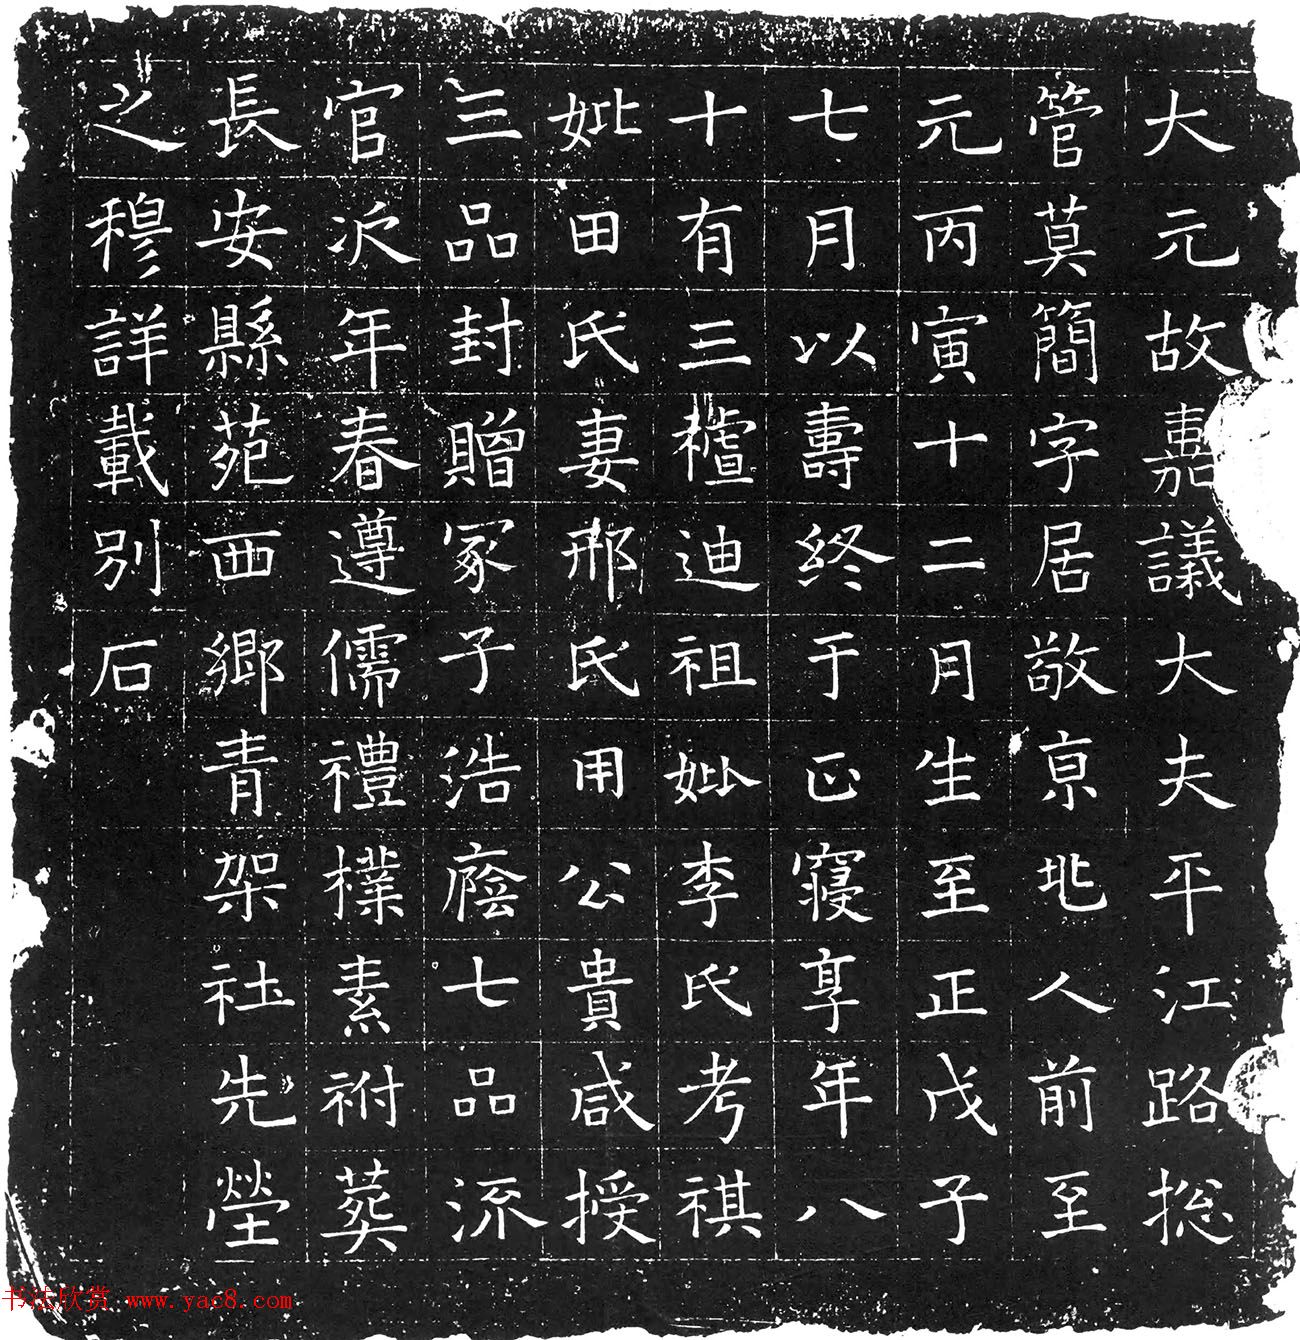 大元故嘉議大夫平江路捴
管莫簡字居敬亰兆人前至
元丙寅十二月生至正戊子
七月以壽終于正寢享年八
十有三迪祖妣李氏考祺
妣田氏妻邢氏用公貴咸授
三品封贈冢子浩廕七品流
官次年春遵儒禮樸素祔葬
長安縣苑西鄉青架社先塋
之穆詳載別石
书法欣赏 www.yac8.com